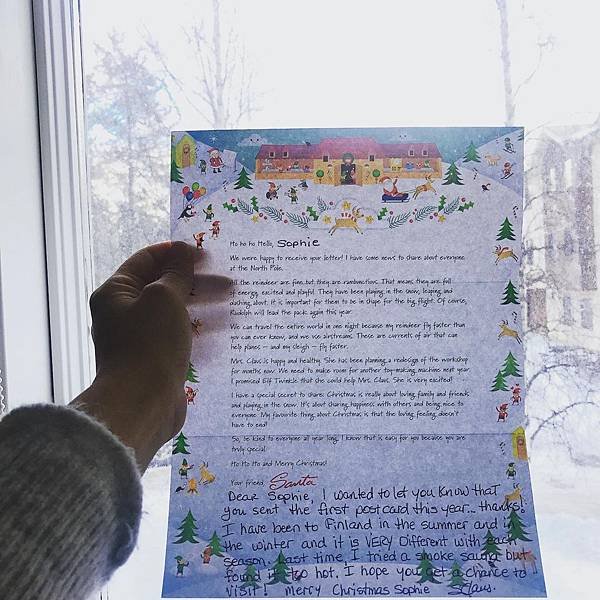 Ho ho ho Hello, Sophie
We were happy to receive your letter! I have some news to share about everyone
at the North Pole.
All the reindeer are fine but they are rambunctious. That means they are full
of energy, excited and playful. They have been playing in the snow, leaping and
dashing about. It is important for them to be in shape for the big flight. Of course,
Rudolph will lead the pack again this year.
We can travel the entire world in one night because my reindeer fly faster than
you can ever know, and we use airstreams. These are currents of air that can
help planes – and my sleigh – fly faster.
Mrs. Claus is happy and healthy. She has been planning a redesign of the workshop
for months now. We need to make room for another toy-making machine next year.
I promised Elf Twinkle that she could help Mrs. Claus. She is very excited!
I have a special secret to share: Christmas is really about loving family and friends
and playing in the snow. It's about sharing happiness with others and being nice to
everyone. My favourite thing about Christmas is that the loving feeling doesn't
have to end!
So, be kind to everyone all year long. I know that is easy for you because you are
truly special.
Ho Ho Ho and Merry Christmas!
Your friend, Santa
Dear Sophie, I wanted to let you know that
you sent the first postcard this year... thanks!
I have been to Finland in the summer and in
the winter and it is VERY Different with each
season. Last time, I tried a smoke sauna but
found it too hot. I hope you get a chance to
visit! Merry Christmas Sophie SClaus.